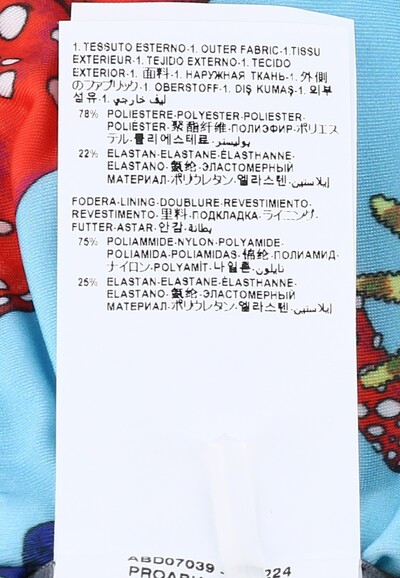 1. TESSUTO ESTERNO-1. OUTER FABRIC-1.TISSU
EXTERIEUR-1. TEJIDO EXTERNO-1. TECIDO
EXTERIOR-1. 面料-1. НАРУЖНАЯ ТКАНЬ-1. 外側
のファブリック-1. OBERSTOFF-1. DIŞ KUMAŞ-1. 외부
섬유-1. ليف خارجي
78% POLIESTERE-POLYESTER-POLIESTER-
POLIÉSTER-聚酯纤维-ПОЛИЭФИР-ポリエス
テル-폴리에스테르-بوليستر
22% ELASTAN-ELASTANE-ÉLASTHANNE-
ELASTANO-氨纶-ЭЛАСТОМЕРНЫЙ
МАТЕРИАЛ-ポリウレタン-엘라스텐-إيلاستين
FODERA-LINING-DOUBLURE-REVESTIMIENTO-
REVESTIMENTO-里料-ПОДКЛАДКА-ライニング-
FUTTER-ASTAR-안감-بطانة
75% POLIAMMIDE-NYLON-POLYAMIDE-
POLIAMIDA-POLIAMIDAS-锦纶-ПОЛИАМИД-
ナイロン-POLYAMİT-나일론-نايلون
25% ELASTAN-ELASTANE-ÉLASTHANNE-
ELASTANO-氨纶-ЭЛАСТОМЕРНЫЙ
МАТЕРИАЛ-ポリウレタン-엘라스텐-إيلاستين
ABD07039 - 224